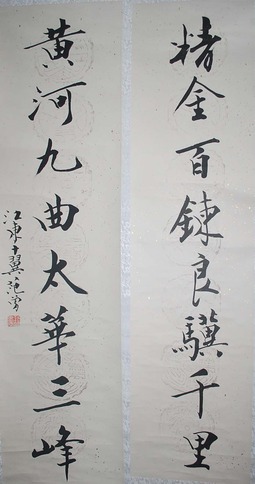 精金百鍊良驥千里
黃河九曲太華三峰
江東十翼范曾